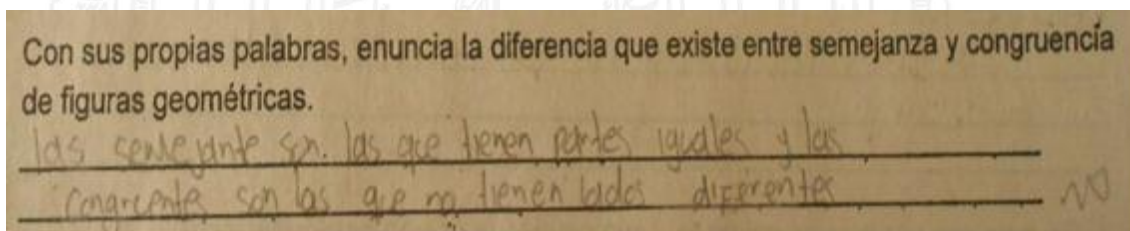 Con sus propias palabras, enuncia la diferencia que existe entre semejanza y congruencia
de figuras geométricas.
las semejante son. las que tienen partes iguales y las
congruente son las que no tienen lados diferentes